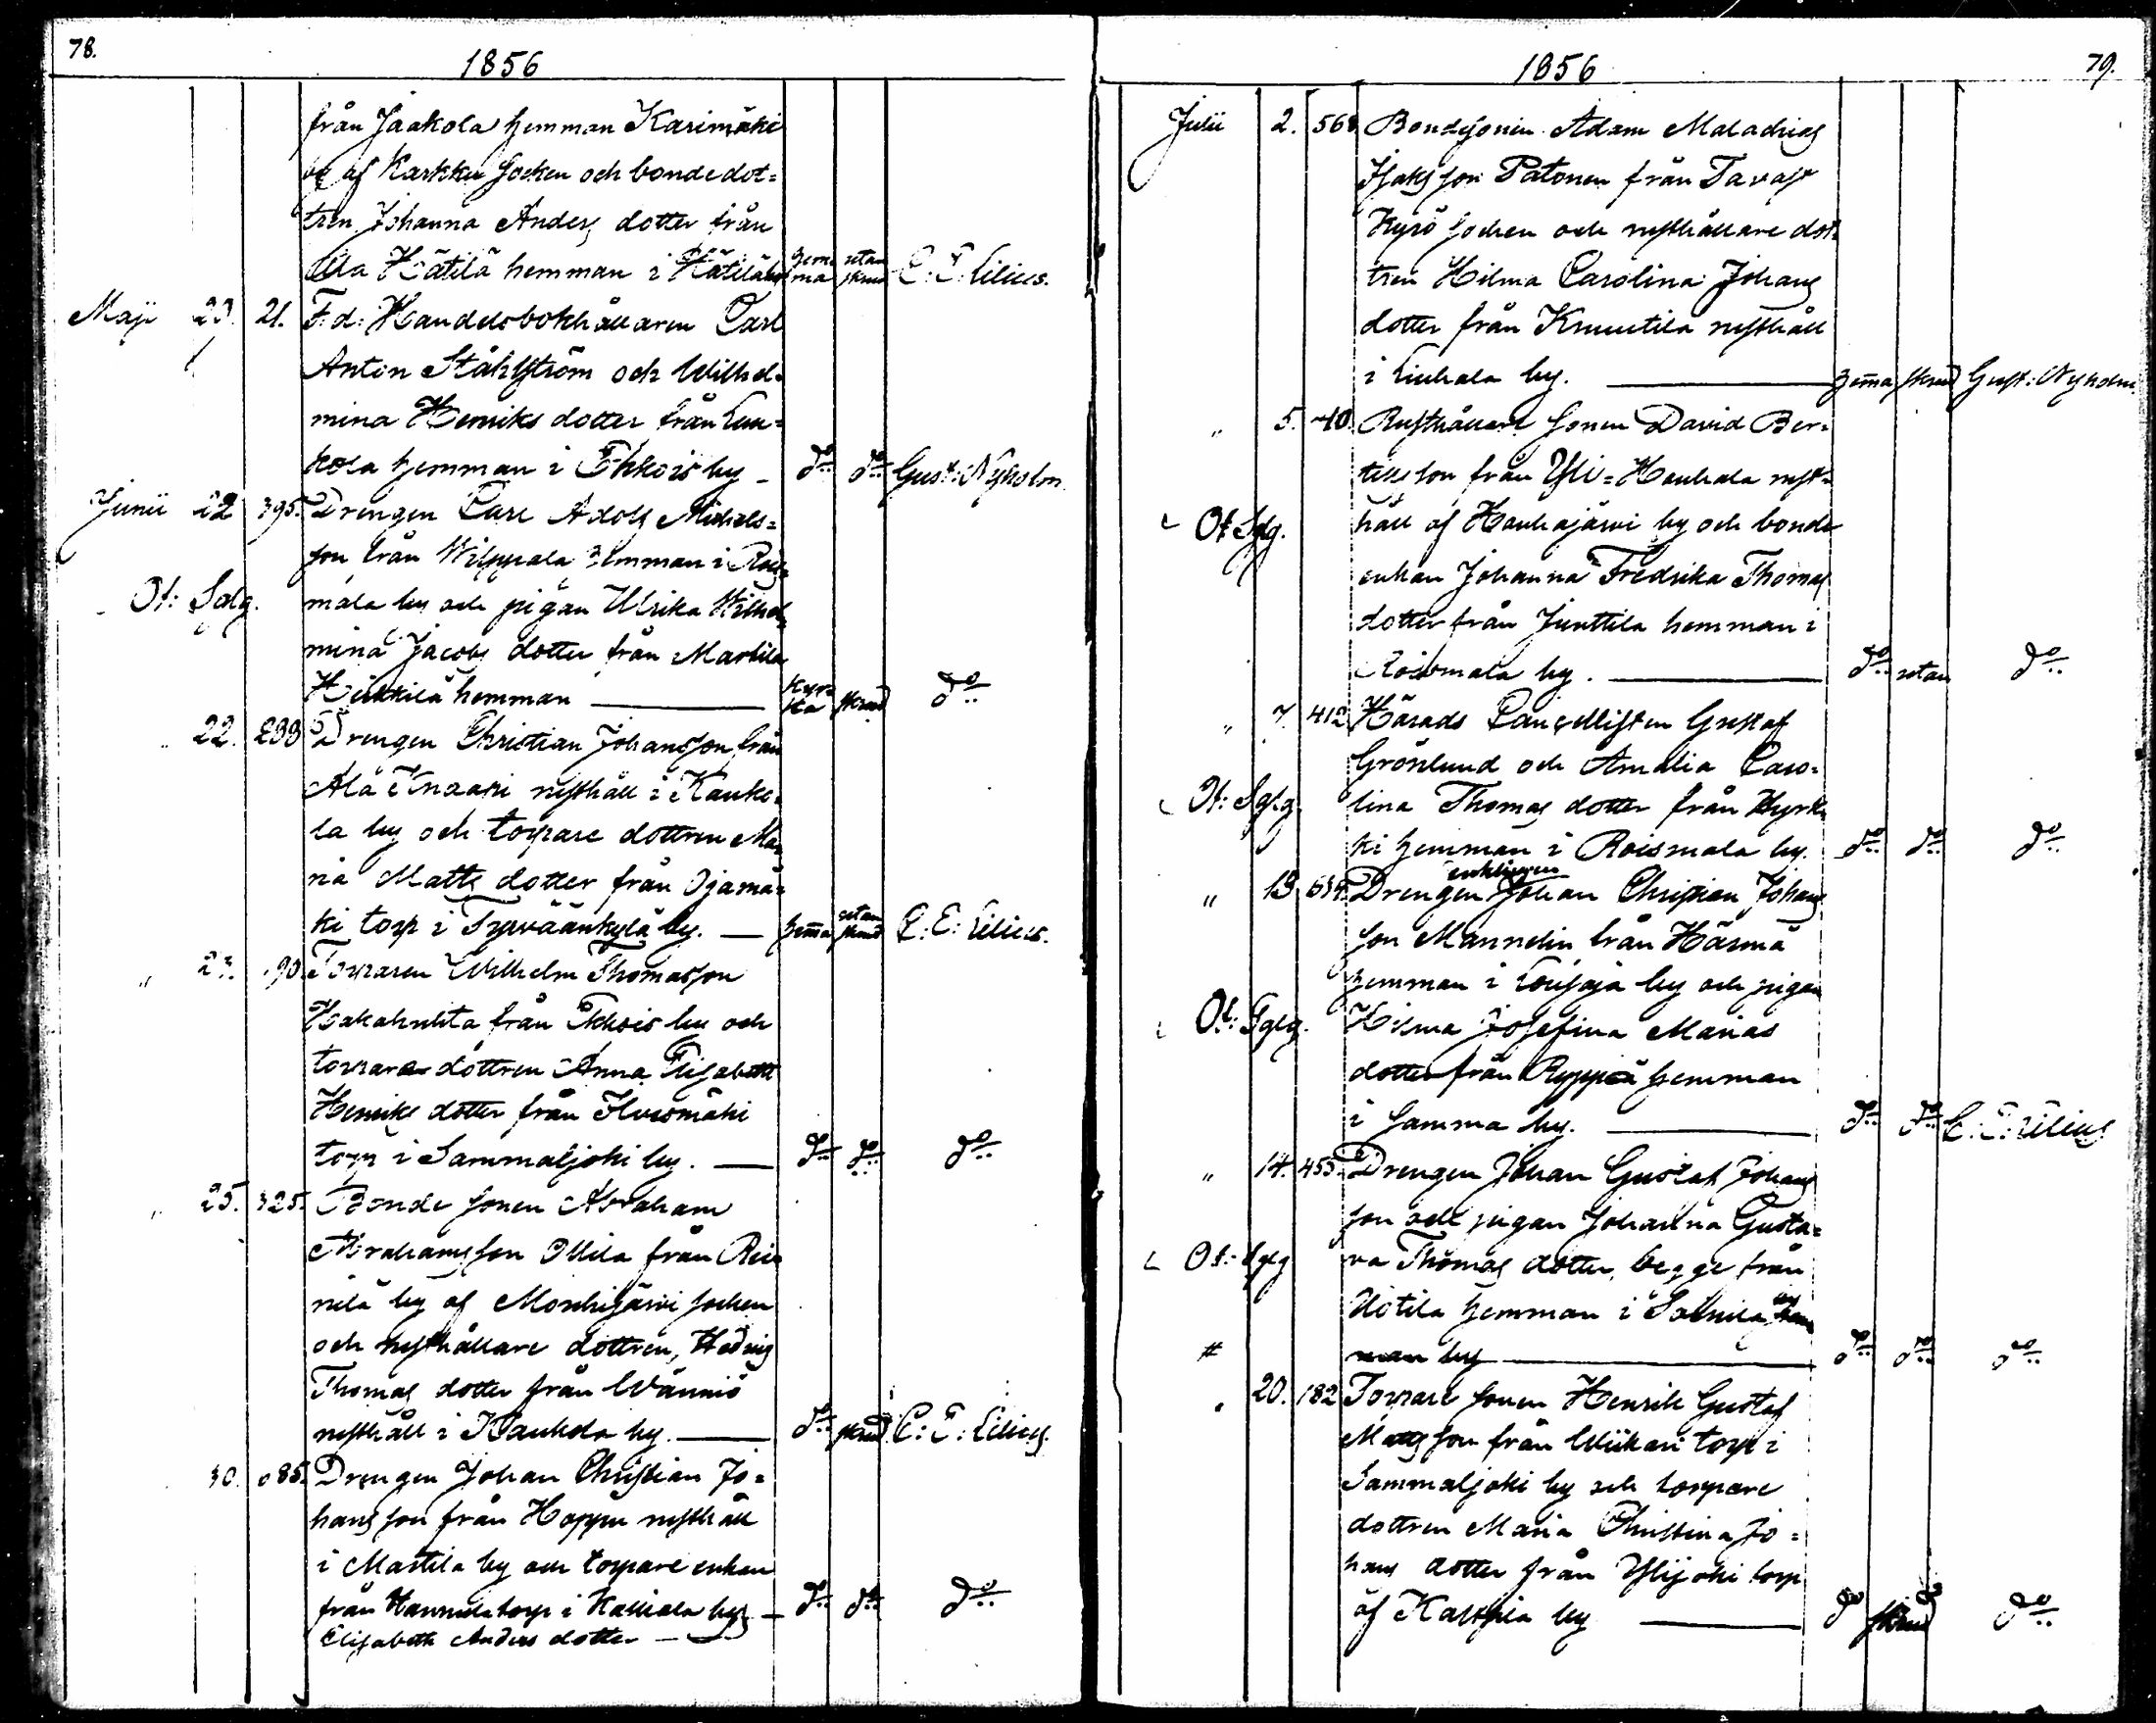 78.
1856
från Jaakola hemman Karimäki
by af Karkku Socken och bondedot=
tren Johanna Anders dotter från
Ala Hätilä hemman i Hätilä by hem= ma utan skrud C: E: Lilius.
Maji 23. 21. F: d: Handelsbokhållaren Carl
Anton Ståhlström och Wilhel=
mina Henriks dotter från
kola hemman i Ekkois by _ do do Gust: Nyholm.
Junii 22 395. Drengen Carl Adolf Michels=
son från Wilppala hemman i Rois=
Ot: Salg. mala by och pigan Ulrika Wilhel=
mina Jacobs dotter från Martila
Heikkilä hemman — kyr= ka skrud do
" 22. 299 Drengen Christian Johansson från
Ala Knaapi rusthåll i Kauko=
la by och torpare dottren Ma=
ria Matts dotter från Ojamä=
ki torp i Tyrväänkylä by. — hema utan skrud C: E: Lilius.
" 23. 90. Torparen Wilhelm Thomasson
Hakahuhta från Ekkois by och
torpare dottren Anna Elisabeth
Henriks dotter från
torp i Sammaljoki by. — do do do
" 25. 325. Bonde Sonen Abraham
Abrahamsson Ollila från
nilä by af Mouhijärvi Socken
och rusthållare dottren, Hedvig
Thomas dotter från Wänniö
rusthåll i Kaukola by. — do skrud C: E: Lilius.
30. 085. Drengen Johan Christian Jo=
hansson från Hoppu rusthåll
i Martila by och torpare enkan
från Hannula torp i Kalliala by — do do do
Elisabeth Anders dotter —
1856
79.
Julii 2. 568 Bondesonen Adam Malachias
Isaksson Patonen från Tavast
Kyrö Socken och rusthållare dot=
tren Hilma Carolina Johans
dotter från Knuutila rusthåll
i Liuhala by. — hema skrud Gust: Nyholm
" 5. 40. Rusthållare Sonen David Ber=
tilsson från Yli=Houhala rust=
Ot Sglg. håll af Houhajärvi by och bonde
enkan Johanna Fredrika Thomas
dotter från Junttila hemman i
Roismala by. — do utan do
" 7. 412 Härads Cancellisten Gustaf
Grönlund och Amalia Caro=
Ot: Sglg. lina Thomas dotter från Kyrk=
ki hemman i Roismala by. do do do
enklingen
" 13. 659. Drengen Johan Christian Johans
son Mannelin från Härmä
hemman i Lousaja by och pigan
Ot: Sglg. Hilma Josefina Marias
dotter från Ryppä hemman
i Samma by. — do do C: E: Lilius
" 14. 455. Drengen Johan Gustaf Johans
son och pigan Johanna Gusta=
Ot: Sglg va Thomas dotter, begge från
Uotila hemman i Sotkila by
# man by — do do do
" 20. 182 Torpare Sonen Henrik Gustaf
Matsson från Wiikari torp i
Sammaljoki by och torpare
dottren Maria Christina Jo=
hans dotter från Ylijoki torp
af Kaltsila by — do skrud do